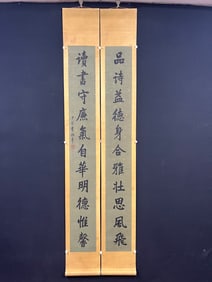 品诗益德身合雅壮思風飛
讀書守廉氣自華明德惟馨